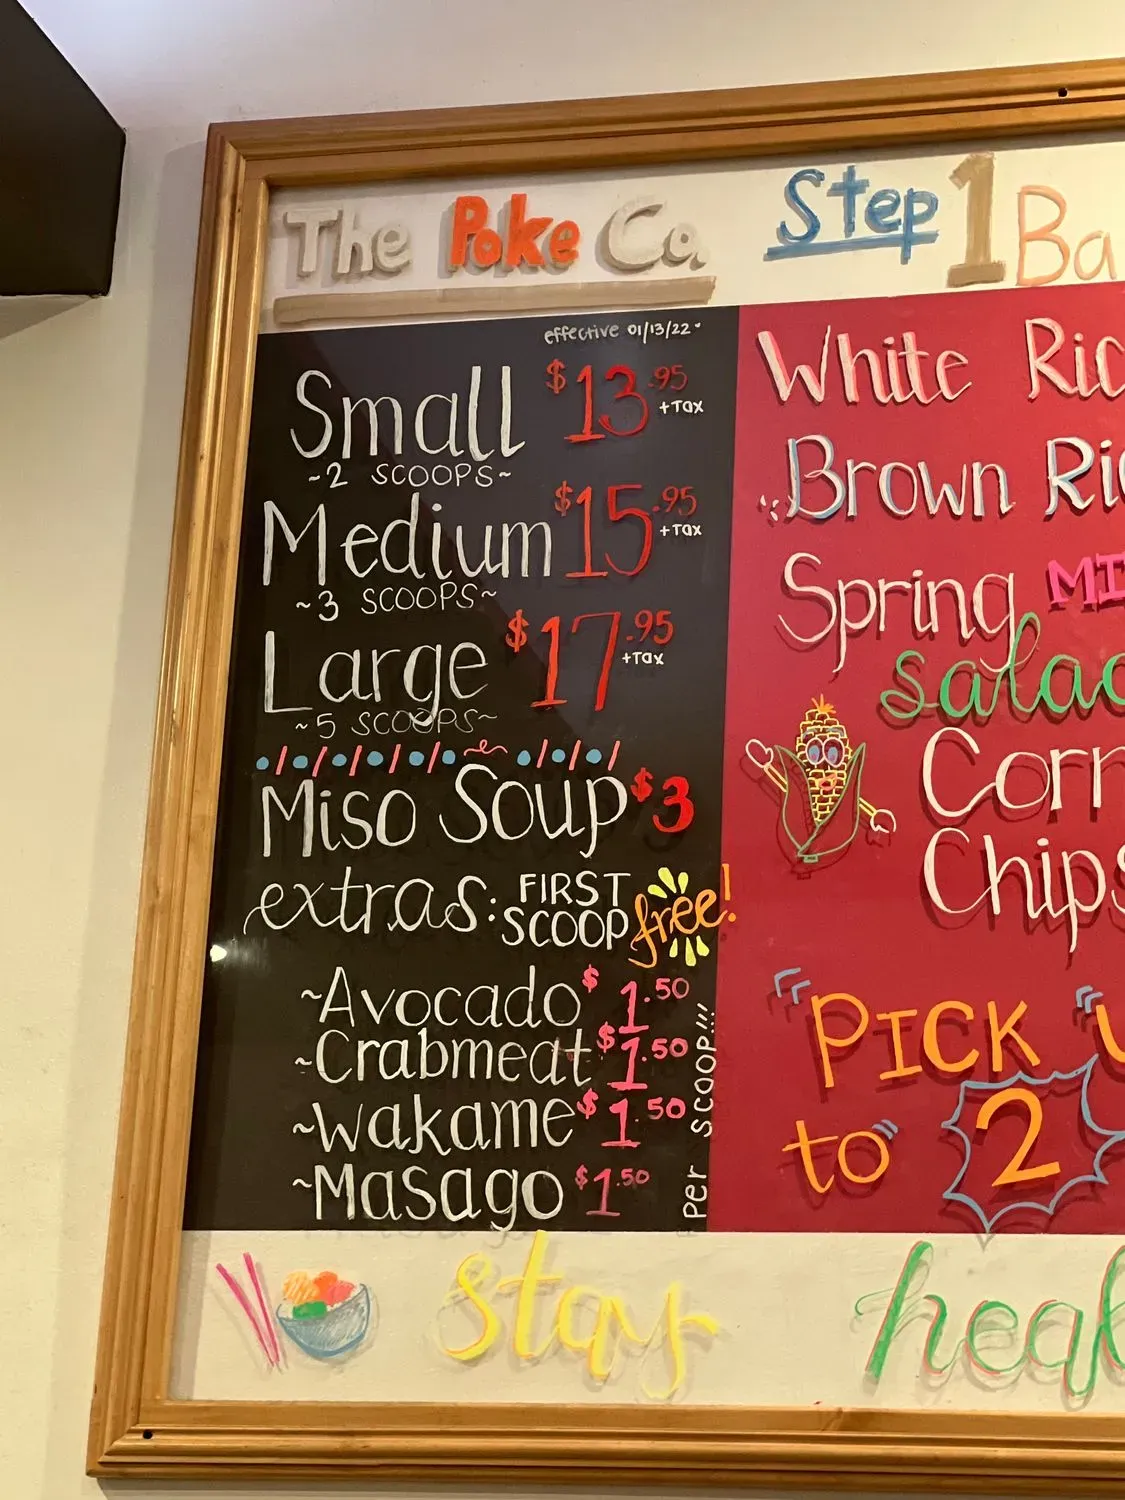 The Poke Co.
Step 1
effective 01/13/22
Small $13.95 +Tax
~2 SCOOPS~
Medium $15.95 +Tax
~3 SCOOPS~
Large $17.95 +Tax
~5 SCOOPS~
Miso Soup $3
extras: FIRST SCOOP free!
~Avocado $1.50
~Crabmeat $1.50
~Wakame $1.50
~Masago $1.50
Per SCOOP!!!
White
Brown
Spring
Chips
"PICK
to" 2
stay